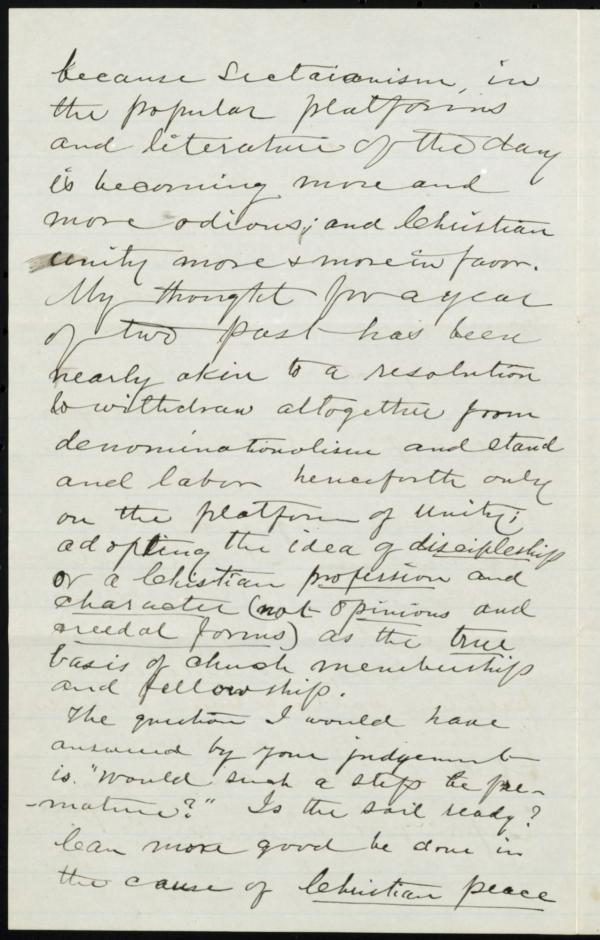 because Sectaianism, in
the popular platforms
and literature of the day
is becoming more and
more odious; and Christian
unity more & more in favor.
My thought for a year
of two past has been
nearly akin to a resolution
to withdraw altogether from
denominationalism and stand
and labor henceforth only
on the platform of Unity;
adopting the idea of discipleship
or a Christian profession and
character (not opinions and
creedal forms) as the true
basis of church membership
and fellowship.
The question I would have
answered by your judgement
is "would such a step be pre-
-mature?" Is the soil ready?
Can more good be done in
the cause of Christian peace